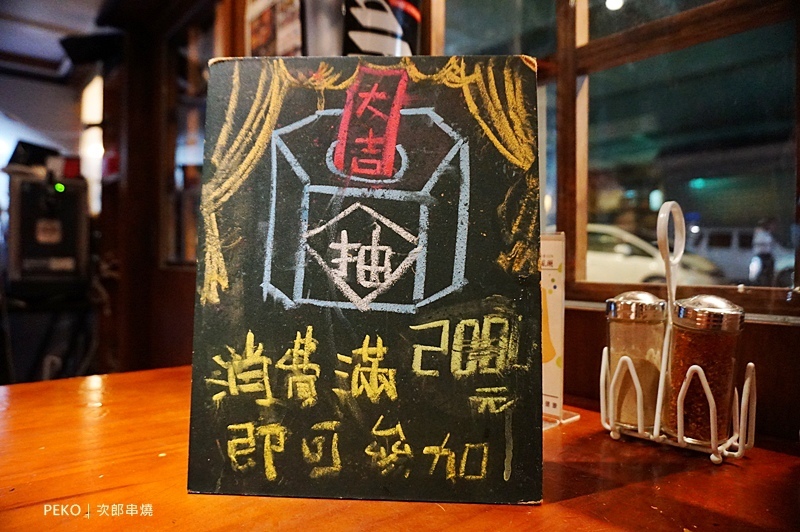 大吉
抽
消費滿2000
元
即可參加
PEKO | 次郎串燒